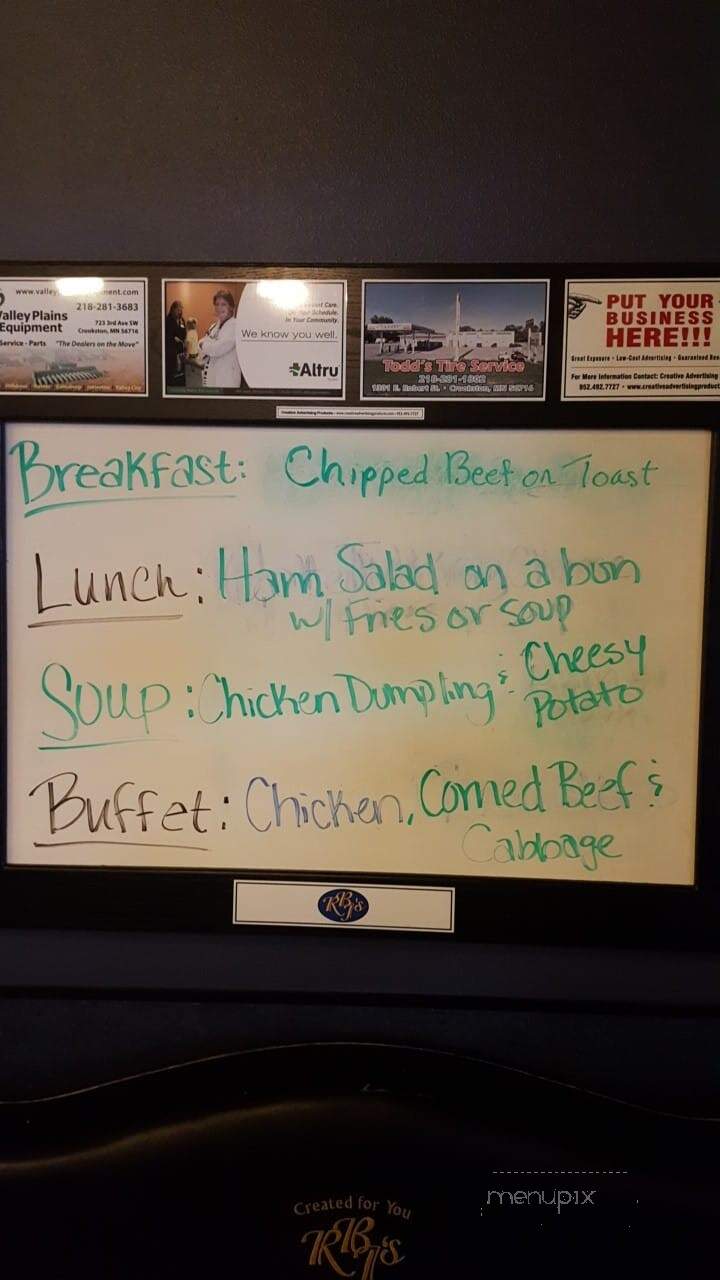 www.valley ment.com
218-281-3683
Valley Plains
Equipment
723 3rd Ave SW
Crookston, MN 56716
Service - Parts "The Dealers on the Move"
In Your Community.
We know you well.
Altru
Todd's Tire Service
218-281-1802
1301 E. Robert St. • Crookston, MN 56716
PUT YOUR
BUSINESS
HERE!!!
Great Exposure • Low-Cost Advertising • Guaranteed
For More Information Contact: Creative Advertising
952.492.7727 • www.creativeadvertisingproduct
Breakfast: Chipped Beef on Toast
Lunch: Ham Salad on a bun
w/ Fries or Soup
Soup: Chicken Dumpling & Cheesy
Potato
Buffet: Chicken, Corned Beef &
Cabbage
RBJ's
Created for You
RBJ's
menupix